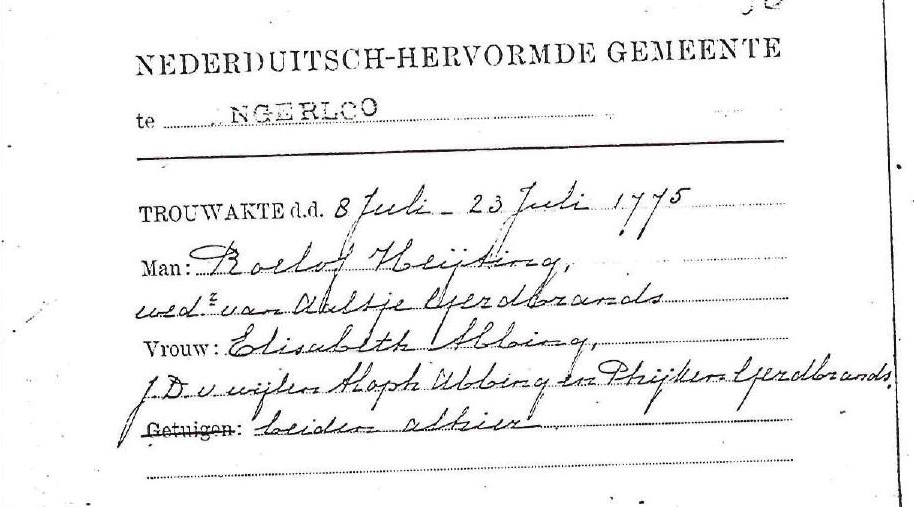 NEDERDUITSCH-HERVORMDE GEMEENTE
te NGERLOO
TROUWAKTE d.d. 8 Juli - 23 Juli 1775
Man: Roelof Heijting,
wedr. van Aaltje Gerdbrands
Vrouw: Elisabeth Abbing,
J.D. v wijlen Aloph Abbing en Gerdbrands.
Getuigen: beiden alhier